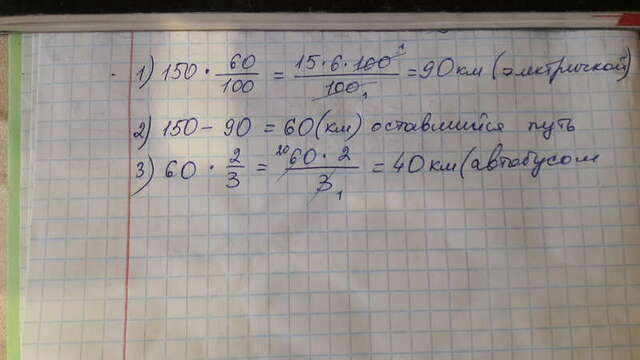 1) 150 · 60/100 = 15·6·100¹/100₁ = 90 км (электричкой)
2) 150 - 90 = 60 (км) оставшийся путь
3) 60 · 2/3 = ²⁰60·2/3₁ = 40 км (автобусом